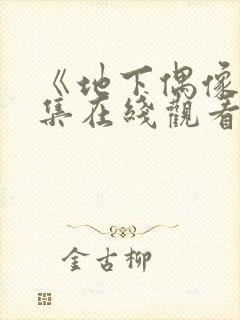 《地下偶像
集在綫觀看
金古柳